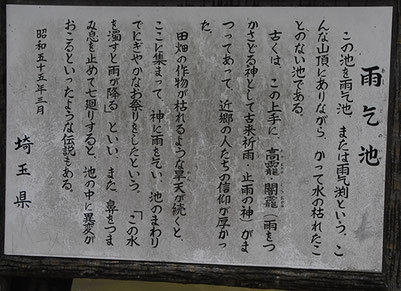 雨乞池
この池を雨乞池、または雨乞渕という。こ
んな山頂にありながら、かつて水の枯れたこ
とのない池である。
古くは、この上手に、高龗・闇龗（雨をつ
かさどる神として古来祈雨・止雨の神）がま
つってあって、近郷の人たちの信仰が厚かっ
た。
田畑の作物が枯れるような旱天が続くと
ここに集まって、神に雨を乞い、池のまわり
でにぎやかなわ祭りをしたという。「この水
を濁すと雨が降る」といい、また、鼻をつま
み息を止めて七廻りすると、池の中に異変が
おこるといったような伝説もある。
昭和五十五年三月
埼玉県